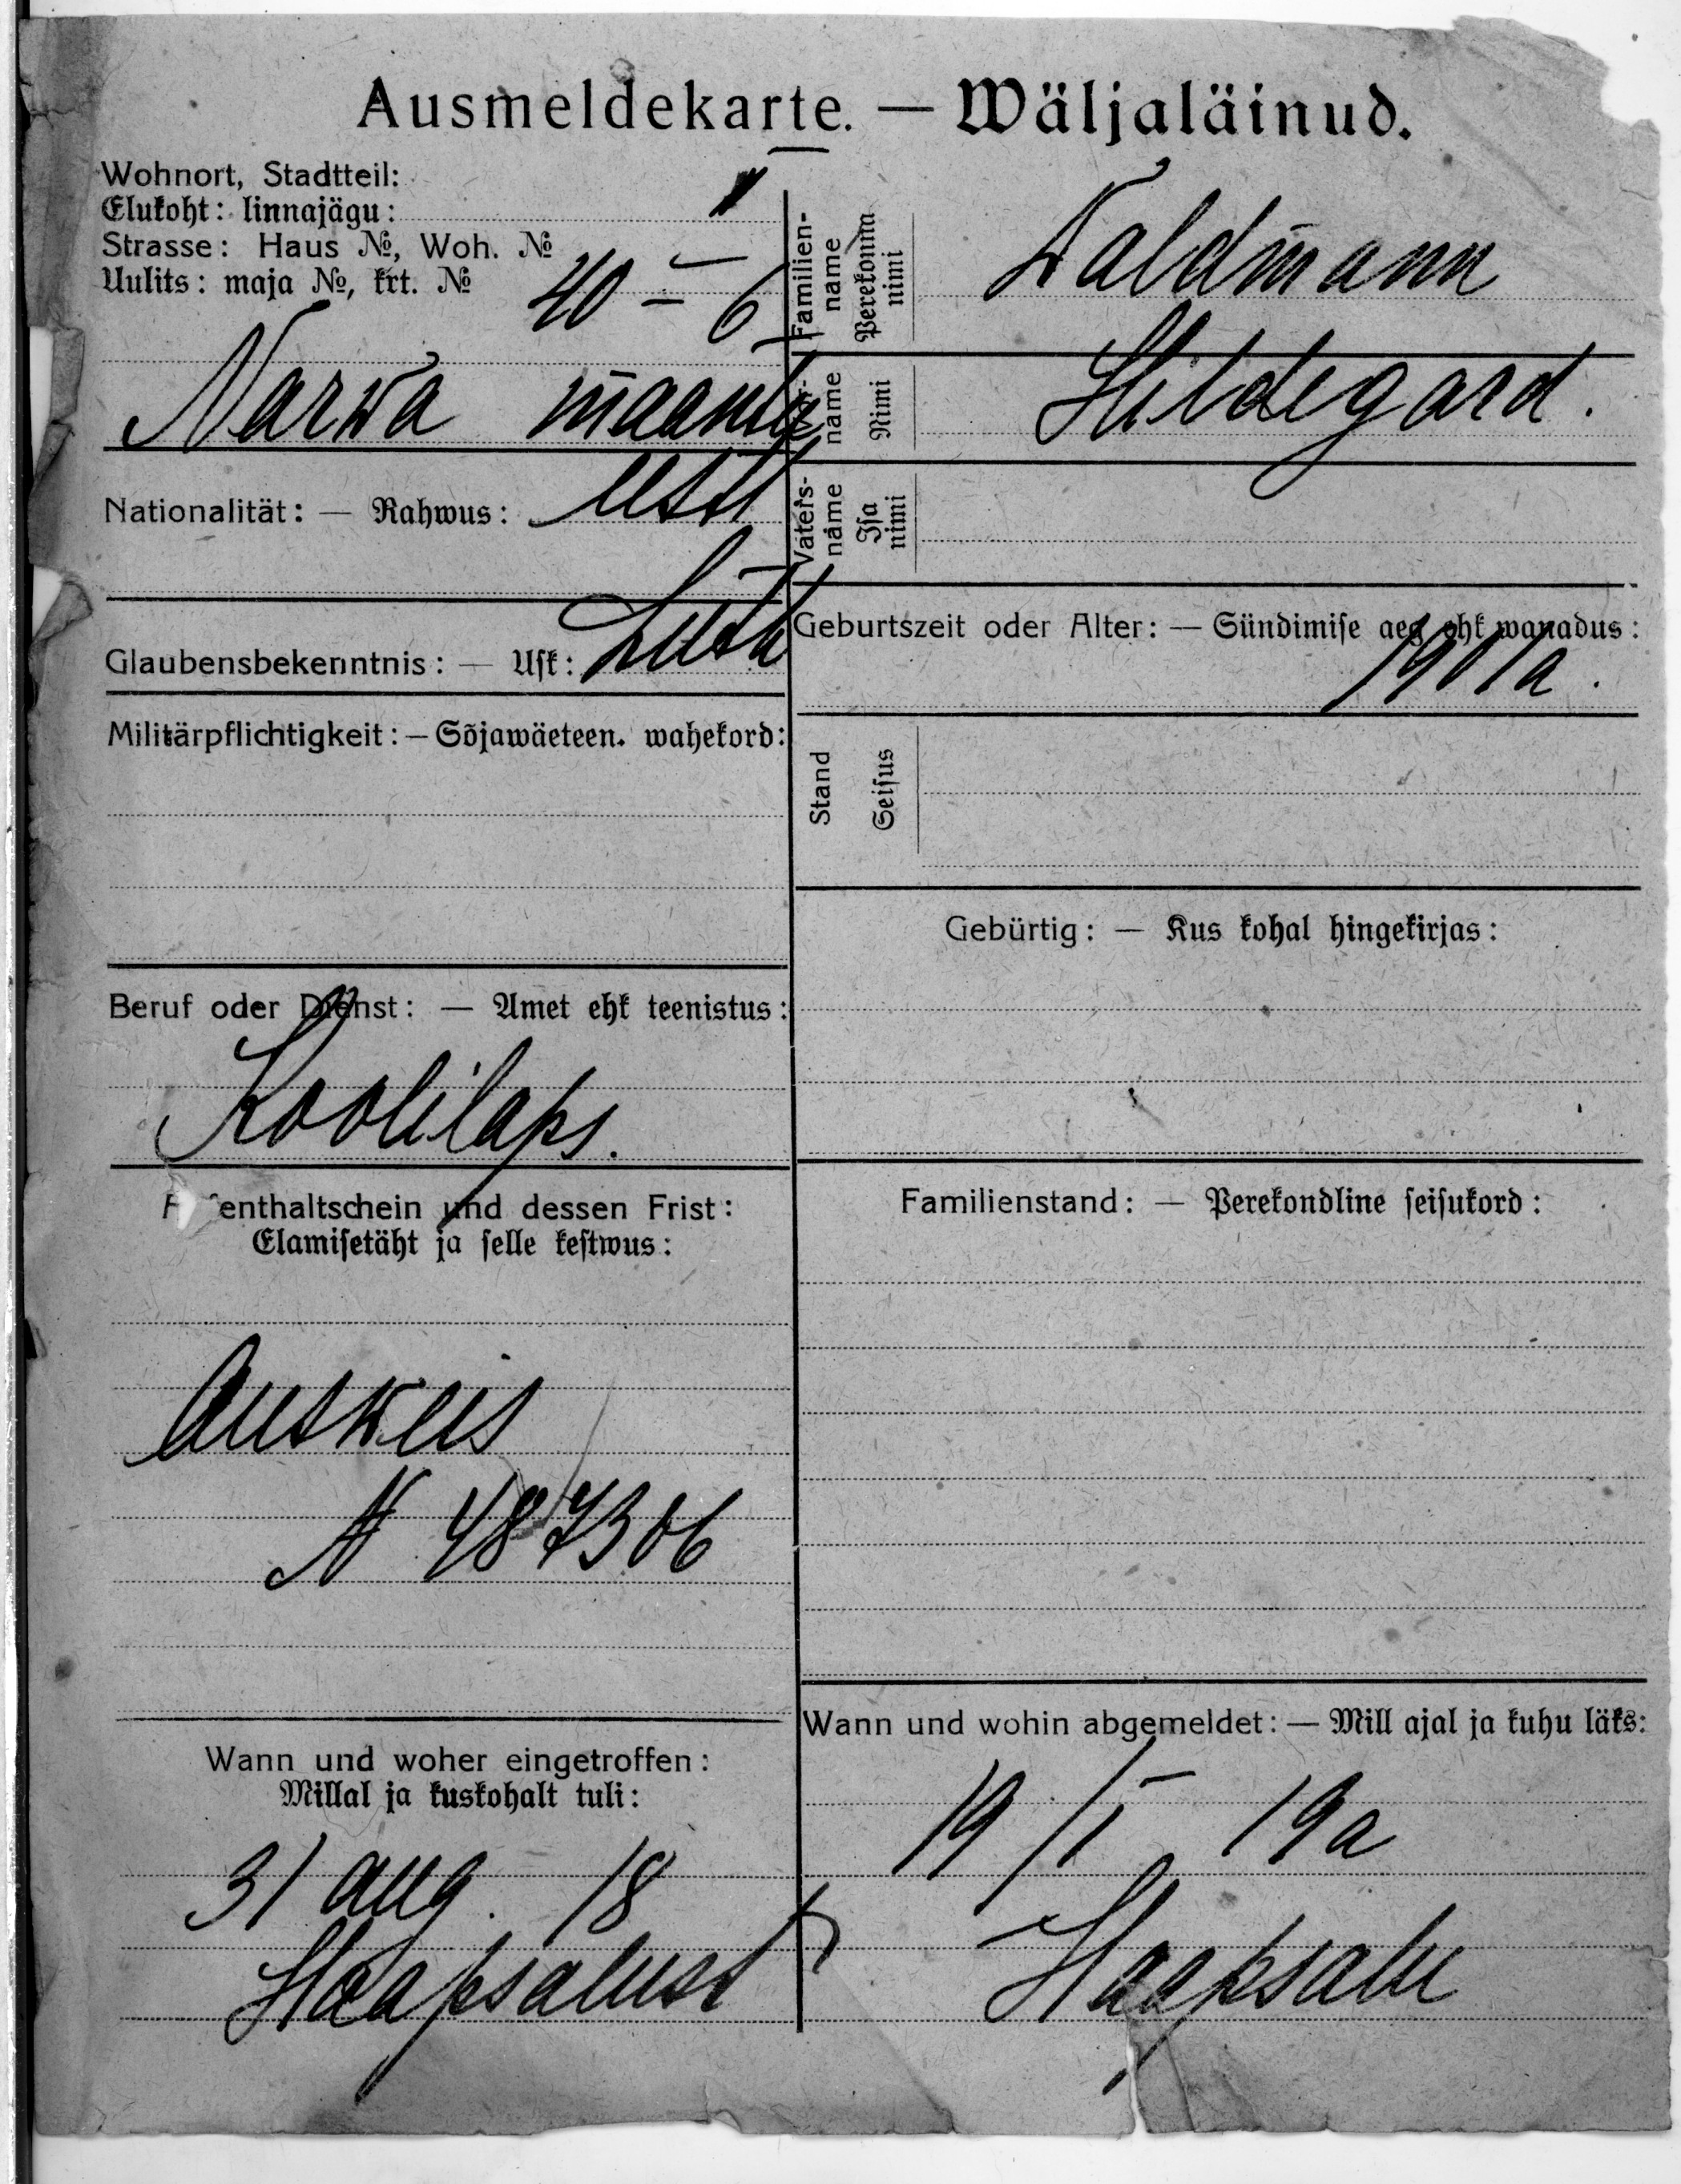 Ausmeldekarte. — Wäljaläinud.
Wohnort, Stadtteil:
Elukoht: linnajägu: I
Strasse: Haus №, Woh. №
Uulits: maja №, krt. № 40 – 6
Narwa maantee
Nationalität: — Rahwus: eesti
Glaubensbekenntnis: — Usk: Luth
Militärpflichtigkeit: — Sõjawäeteen. wahekord:
Beruf oder Dienst: — Amet ehk teenistus:
Koolilaps.
enthaltschein und dessen Frist:
Elamisetäht ja selle kestwus:
Ausweis
N 487306
Wann und woher eingetroffen:
Millal ja kuskohalt tuli:
31 aug. 18
Haapsalust
Familien-
name
Perekonna
nimi
Waldmann
Vor-
name
Nimi
Hildegard.
Vaters-
name
Isa
nimi
Geburtszeit oder Alter: — Sündimise aeg ehk wanadus:
1901 a.
Stand
Seisus
Gebürtig: — Kus kohal hingekirjas:
Familienstand: — Perekondline seisukord:
Wann und wohin abgemeldet: — Mill ajal ja kuhu läks:
19/I 19 a
Haapsalu